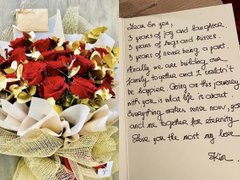 Dear En you,
3 years of joy and laughter,
3 years of hugs and kisses.
3 years of never being apart.
Finally we are building our
family together and I couldn't
be happier. Going on this journey
with you is what life is about.
Everything makes sense now, you
and me together for eternity.
Love you the most my love